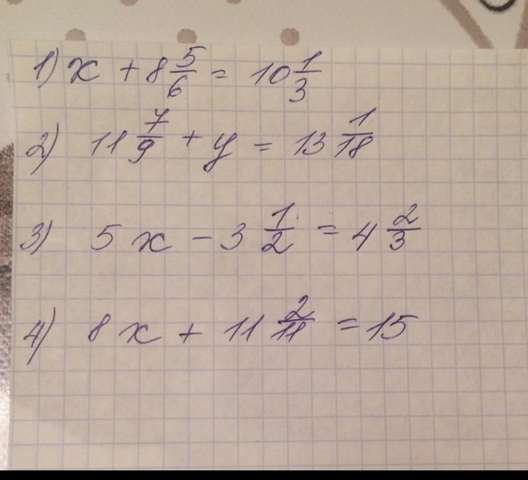 1) x + 8 5/6 = 10 1/3
2) 11 7/9 + y = 13 1/18
3) 5x - 3 1/2 = 4 2/3
4) 8x + 11 2/11 = 15